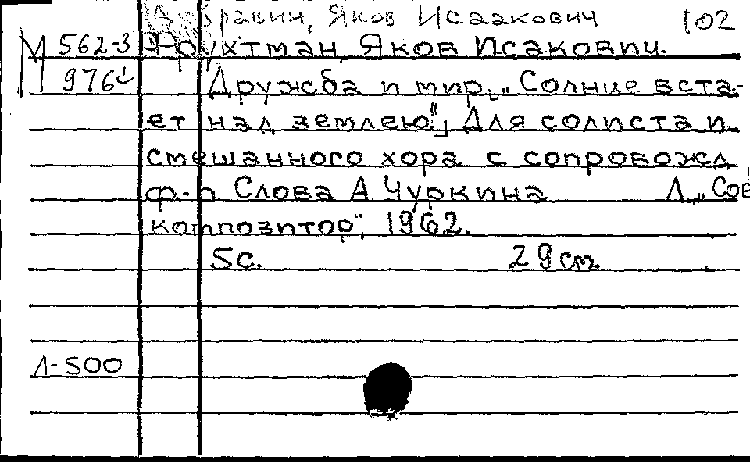 Яков Исаакович 102
М 562-3 Фрухтман Яков Исакович.
976 Дружба и мир. „Солнце вста-
ет над землею". Для солиста и
смешанного хора с сопровожд
ф.-п Слова А Чуркина Л. „Сов
композитор", 1962.
5с. 29 см
Л-500